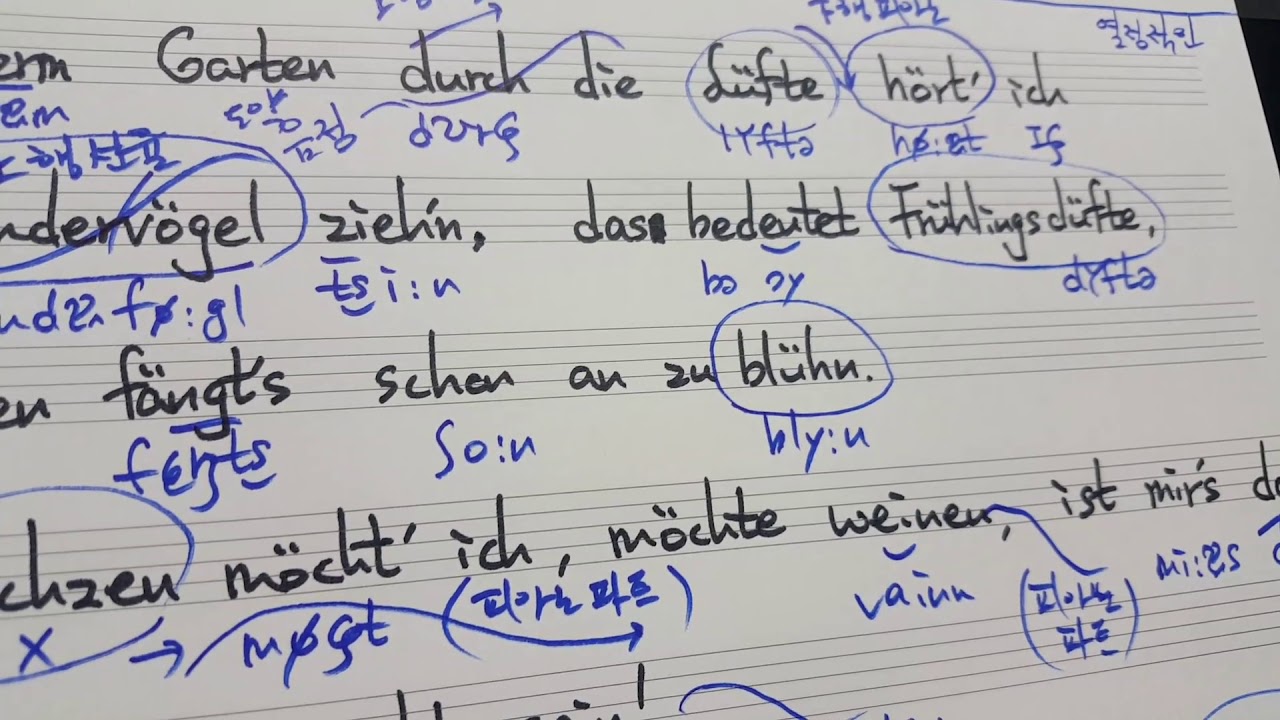 열정적인
Garten durch die Lüfte hört' ich
dʊrç lʏftə hø:ɐt Iç
ndervögel zieh'n, das bedeutet Frühlingsdüfte,
fø:gl tsi:n bə ɔy dʏftə
en fängt's schon an zu blühn.
fɛŋts ʃo:n bly:n
chzen möcht' ich, möchte weinen, ist mir's
X → møçt (피아노 파트) vainn (피아노 파트) mi:ɐs